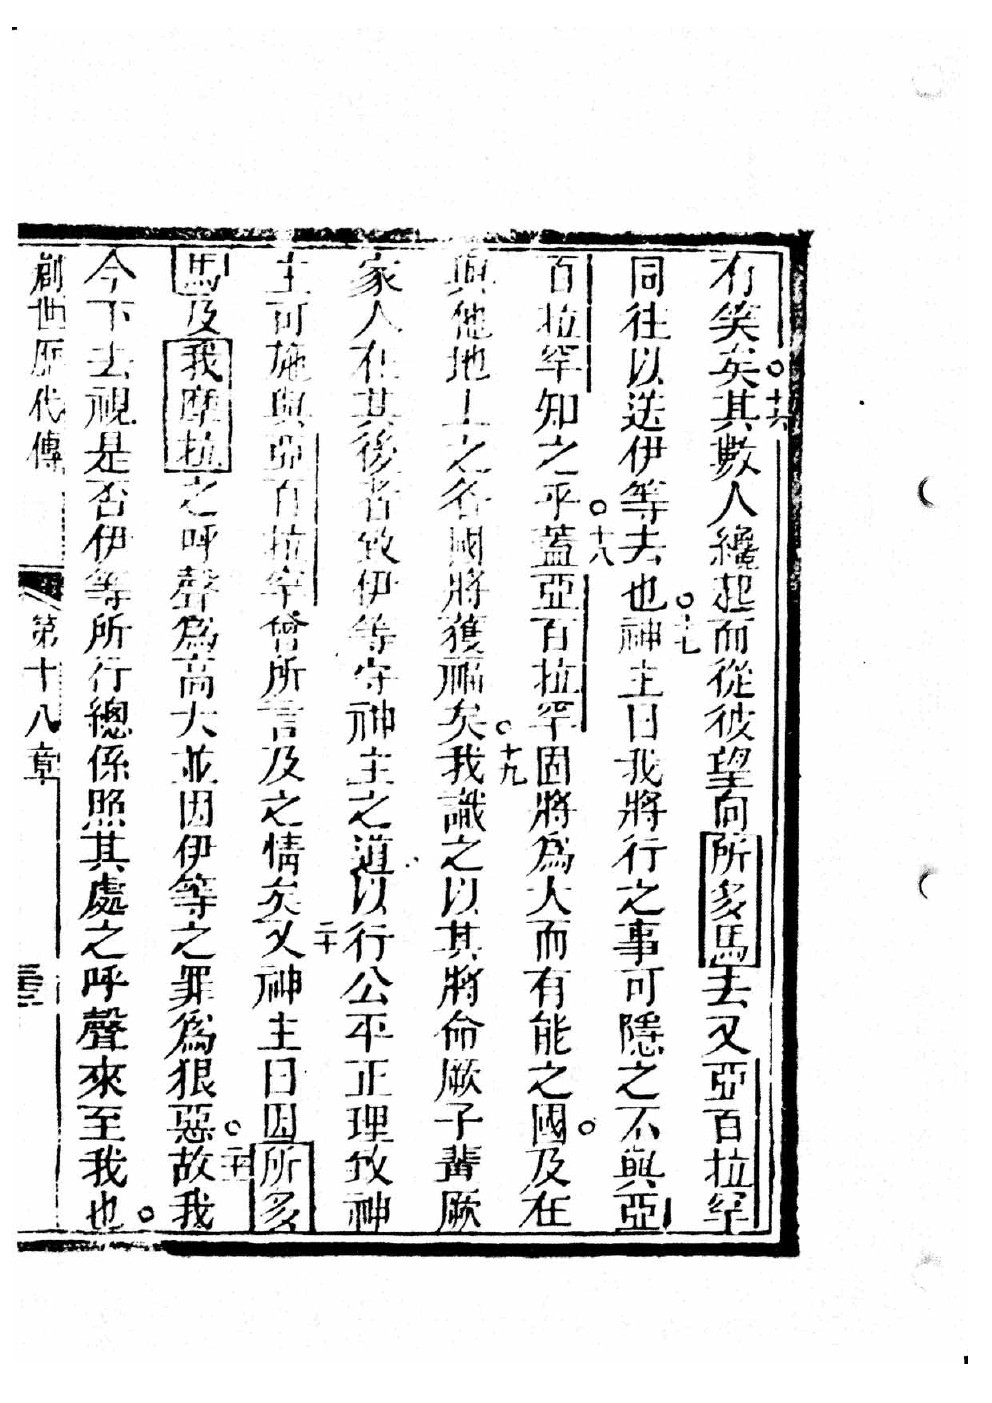 有笑矣。十六其數人纔起而從彼望向所多馬去又亞百拉罕
同往以送伊等去也。十七神主曰我將行之事可隱之不與亞
百拉罕知之乎。十八蓋亞百拉罕固將為大而有能之國。及在
與他地上之各國將獲福矣。十九我識之以其將命厥子輩厥
家人在其後者致伊等守神主之道以行公平正理致神
主可施與亞百拉罕曾所言及之情矣二十又神主曰因所多
馬及我摩拉之呼聲為高大並因伊等之罪為狠惡。二十一故我
今下去視是否伊等所行總係照其處之呼聲來至我也。
創世歷代傳 第十八章